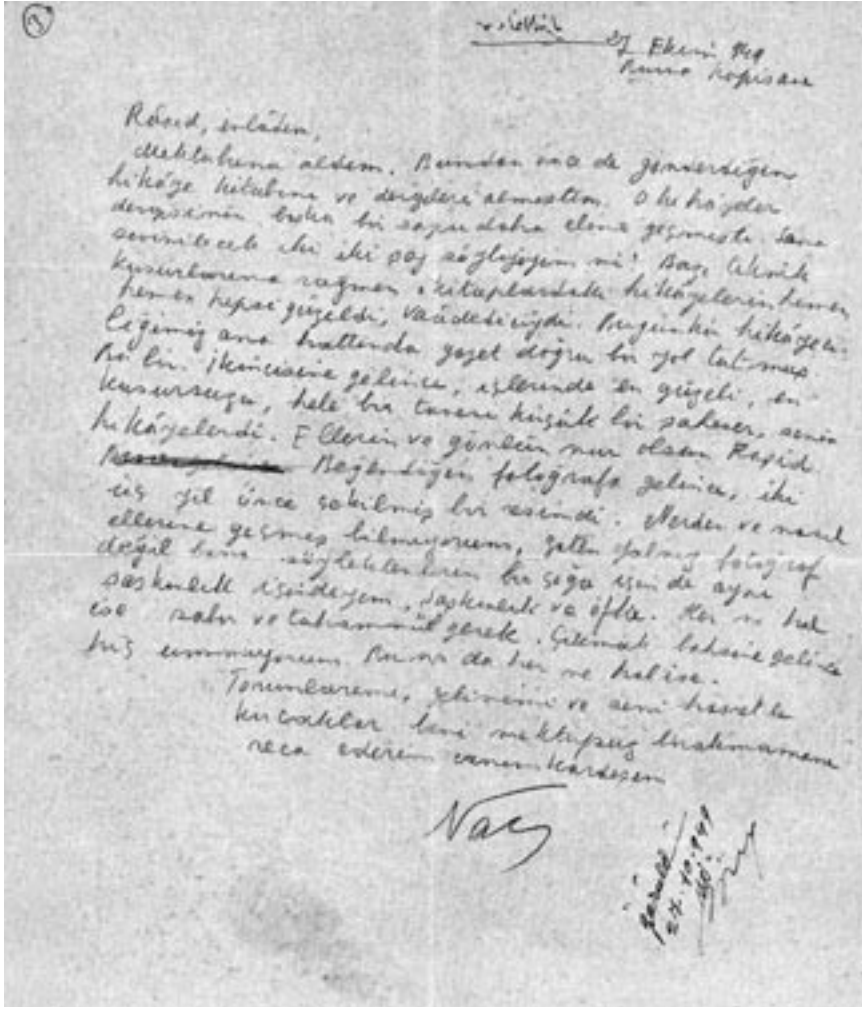 Ekim 949
Bursa Hapisane
Râşid, evlâdım,
Mektubunu aldım. Bundan önce de gönderdiğin
hikâye kitabını ve dergileri almıştım. O hikâyeler
dergisinin başka bir sayısı daha elime geçmişti. Sana
sevinilecek iki şey söyliyeyim mi? Bazı teknik
kusurlarına rağmen kitaplardaki hikâyelerin hemen
hemen hepsi güzeldi, vaadediciydi. Bugünkü hikâyeci-
liğimiz ana hattında gayet doğru bir yol tutmuş
Bu bir. İkincisine gelince, içlerinde en güzeli, en
kusursuzu, hele bir tanesi küçük bir şaheser, senin
hikâyelerdi. Ellerin ve gönlün nur olsun Raşid.
Beğendiğin fotoğrafa gelince, iki
üç yıl önce çekilmiş bir resimdi. Nerden ve nasıl
ellerine geçmiş bilmiyorum, zaten yalnız fotoğraf
değil bana söyletilenlerin bu çoğu için de aynı
şaşkınlık içindeyim, şaşkınlık ve öfke. Her ne hal
ise sabır ve tahammül gerek. Çıkmak bahsine gelince
hiç ummuyorum. Bu da her ne halise.
Torunlarımı, gelinimi ve seni hasretle
kucaklar beni mektupsuz bırakmamanı
rica ederim canım kardeşim
Görüldü
27.10.949